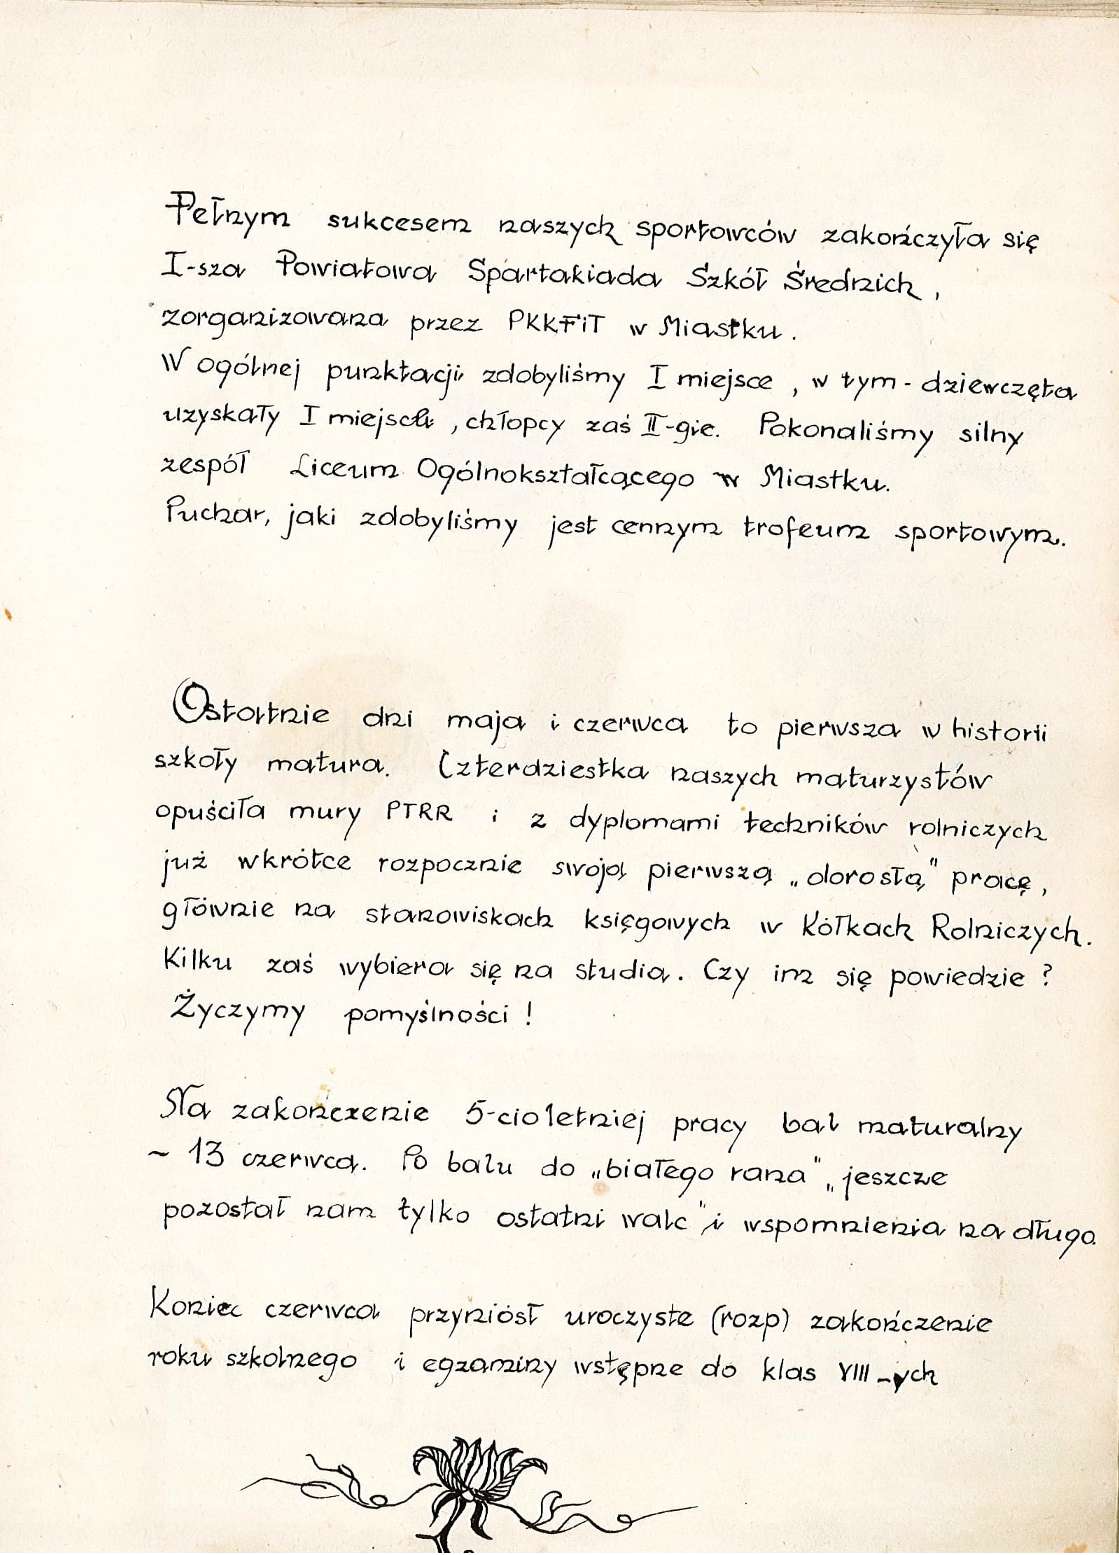 Pełnym sukcesem naszych sportowców zakończyła się
I-sza Powiatowa Spartakiada Szkół Średnich,
zorganizowana przez PKKFiT w Miastku.
W ogólnej punktacji zdobyliśmy I miejsce, w tym - dziewczęta
uzyskały I miejsce, chłopcy zaś II-gie. Pokonaliśmy silny
zespół Liceum Ogólnokształcącego w Miastku.
Puchar, jaki zdobyliśmy jest cennym trofeum sportowym.
Ostatnie dni maja i czerwca to pierwsza w historii
szkoły matura. Czterdziestka naszych maturzystów
opuściła mury PTRR i z dyplomami techników rolniczych
już wkrótce rozpocznie swoją pierwszą „dorosłą" pracę,
głównie na stanowiskach księgowych w Kółkach Rolniczych.
Kilku zaś wybiera się na studia. Czy im się powiedzie?
Życzymy pomyślności!
Na zakończenie 5-cioletniej pracy bal maturalny
~ 13 czerwca. Po balu do „białego rana", „jeszcze
pozostał nam tylko ostatni walc" i wspomnienia na długo.
Koniec czerwca przyniósł uroczyste (rozp) zakończenie
roku szkolnego i egzaminy wstępne do klas VIII-ych